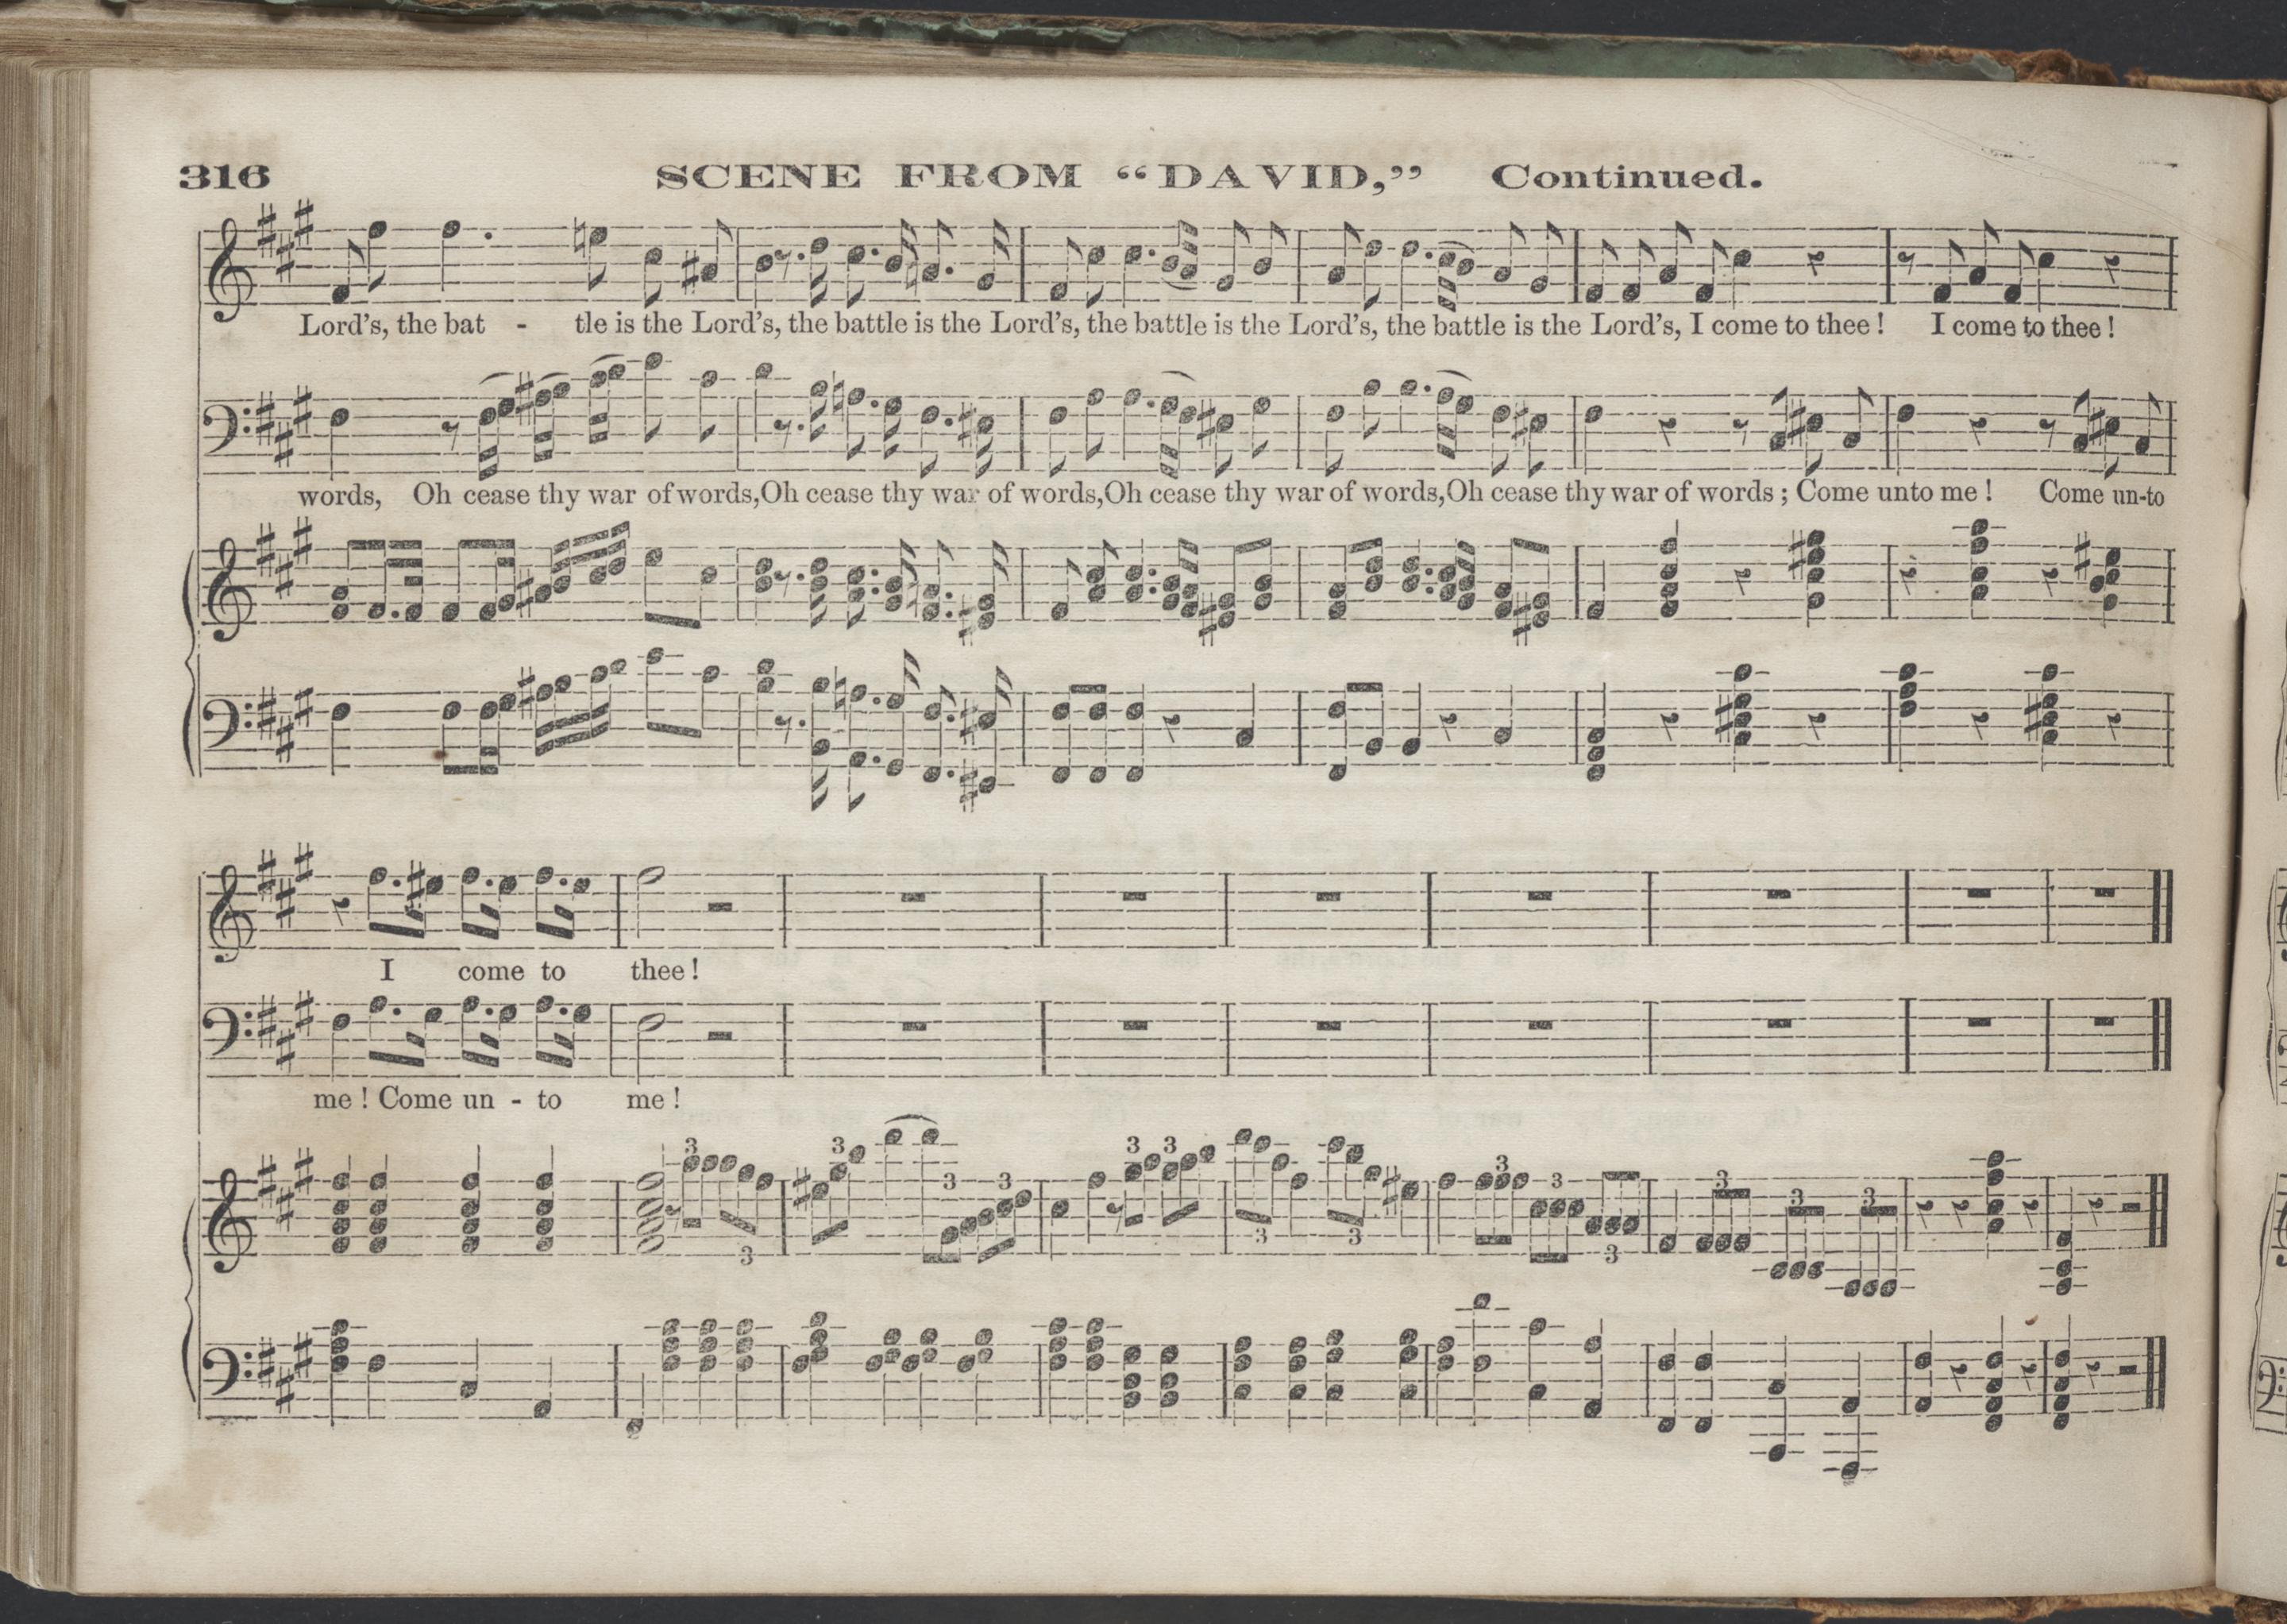 316 SCENE FROM “DAVID,” Continued.
Lord’s, the bat - tle is the Lord’s, the battle is the Lord’s, the battle is the Lord’s, the battle is the Lord’s, I come to thee ! I come to thee !
words, Oh cease thy war of words, Oh cease thy war of words, Oh cease thy war of words, Oh cease thy war of words ; Come unto me ! Come un-to
I come to thee !
me ! Come un - to me !
3 3 3 3 3 3 3 3 3 3
3 3 3 3 3